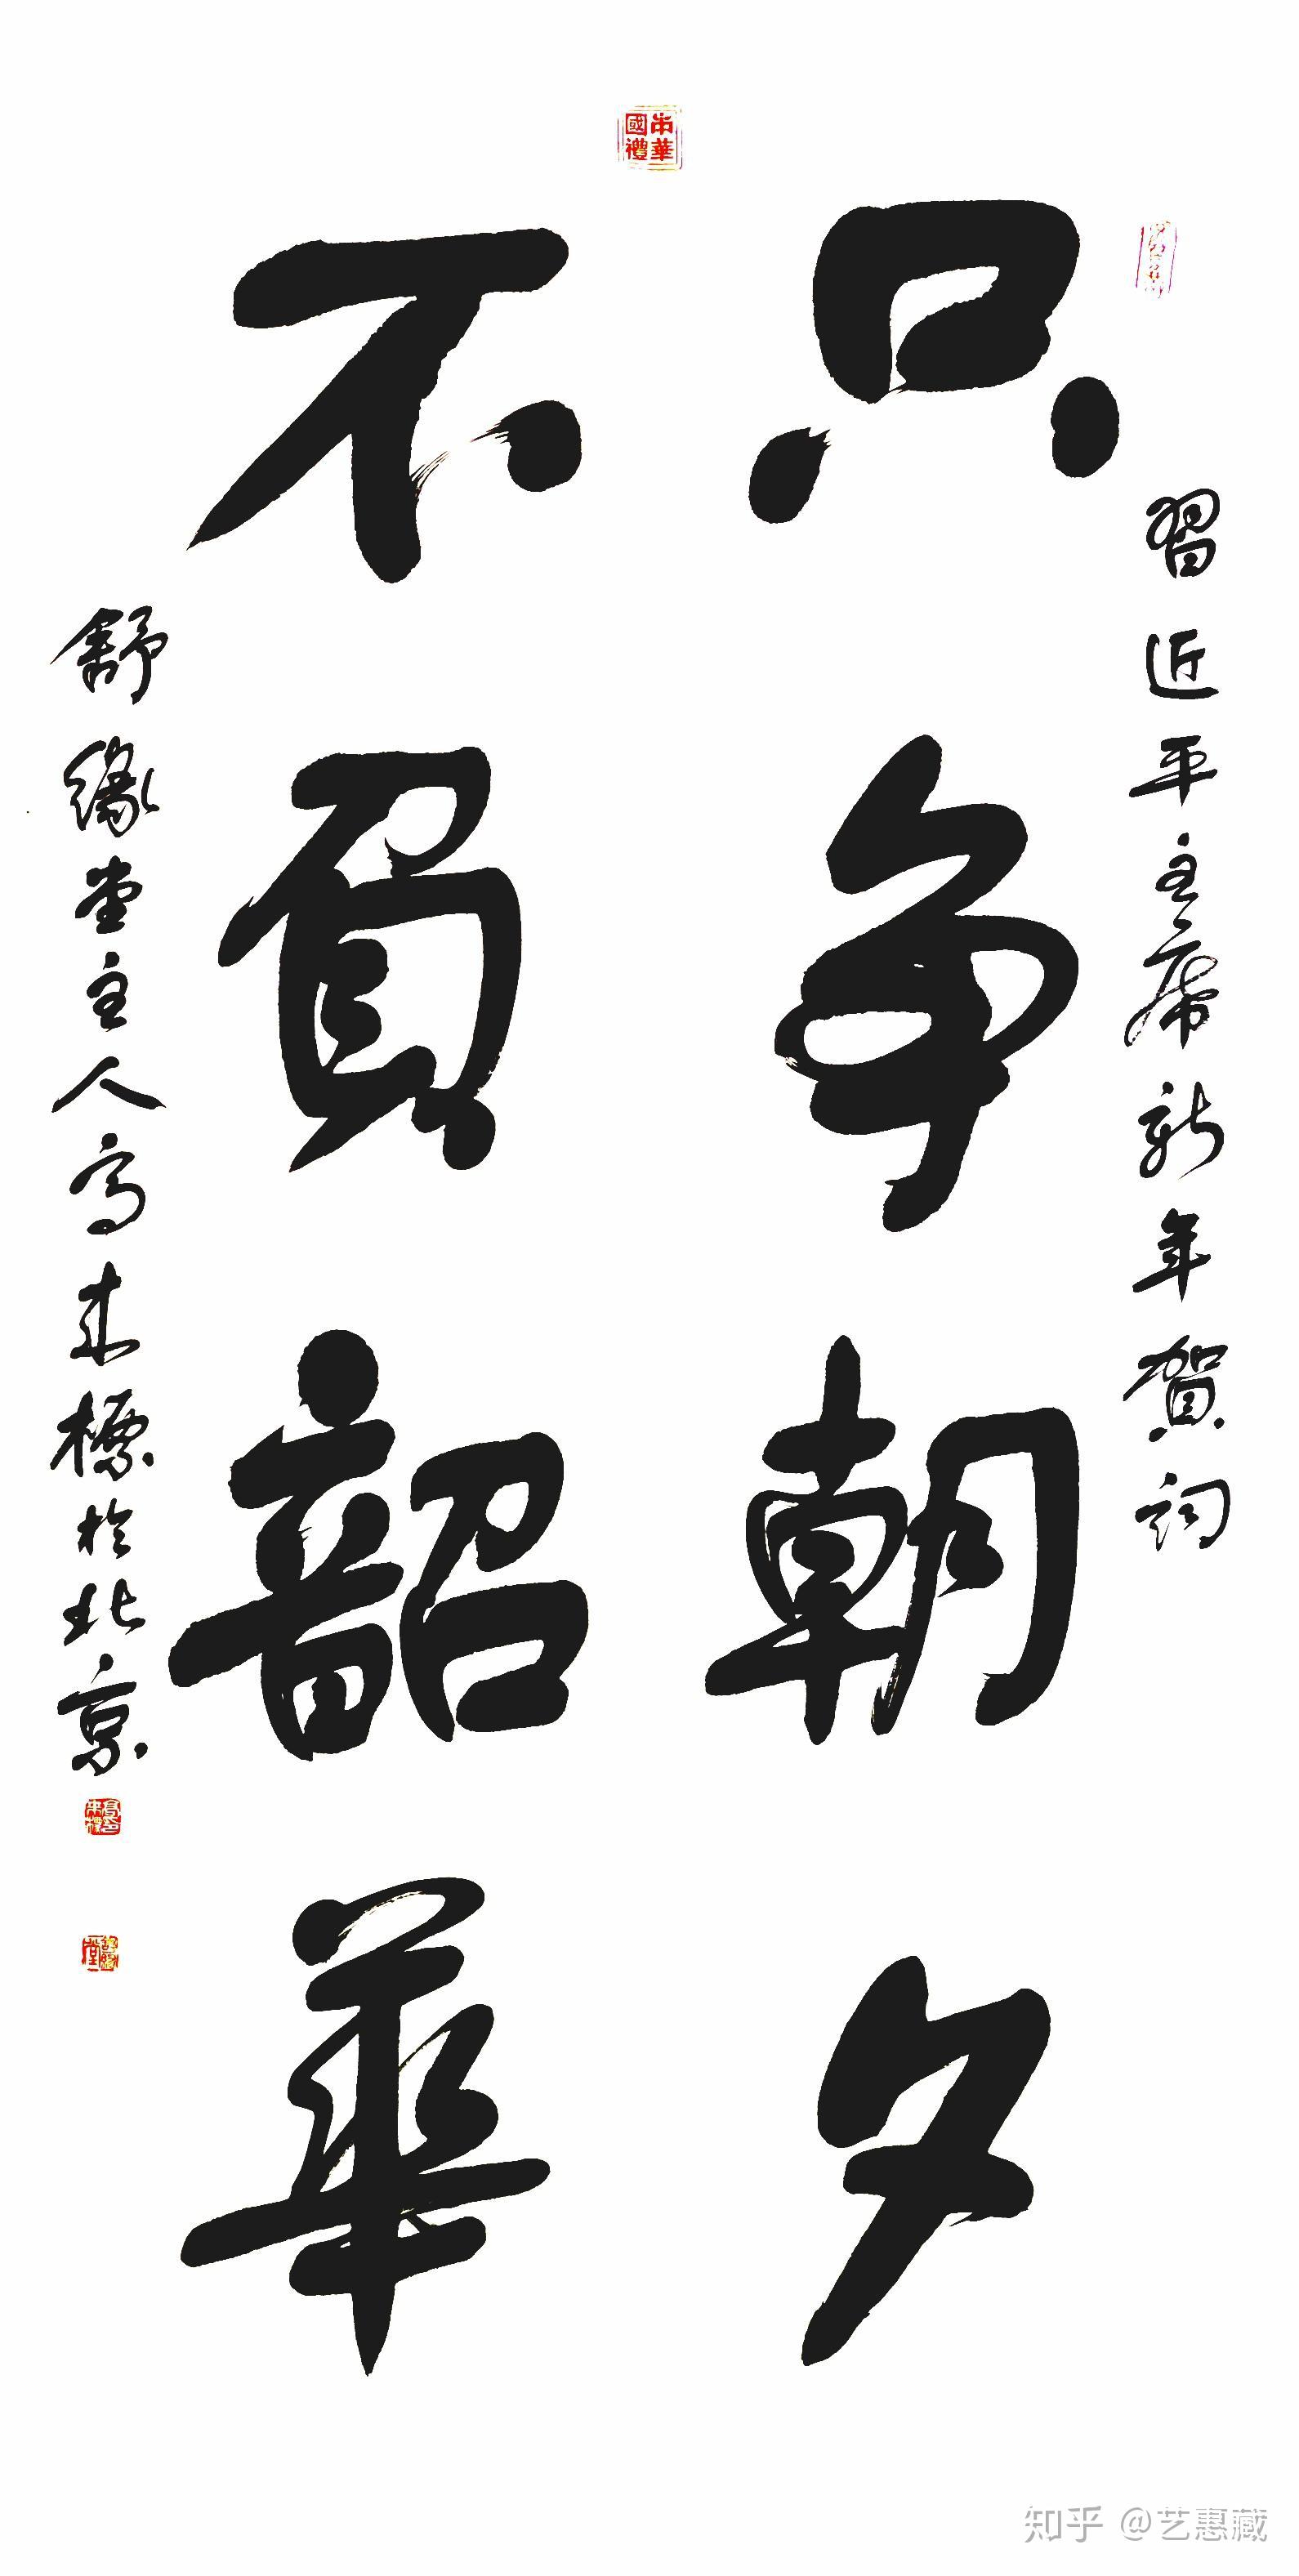 中華國禮
習近平主席新年賀詞
只争朝夕
不負韶華
舒缘堂主人高来標於北京
知乎 @艺惠藏